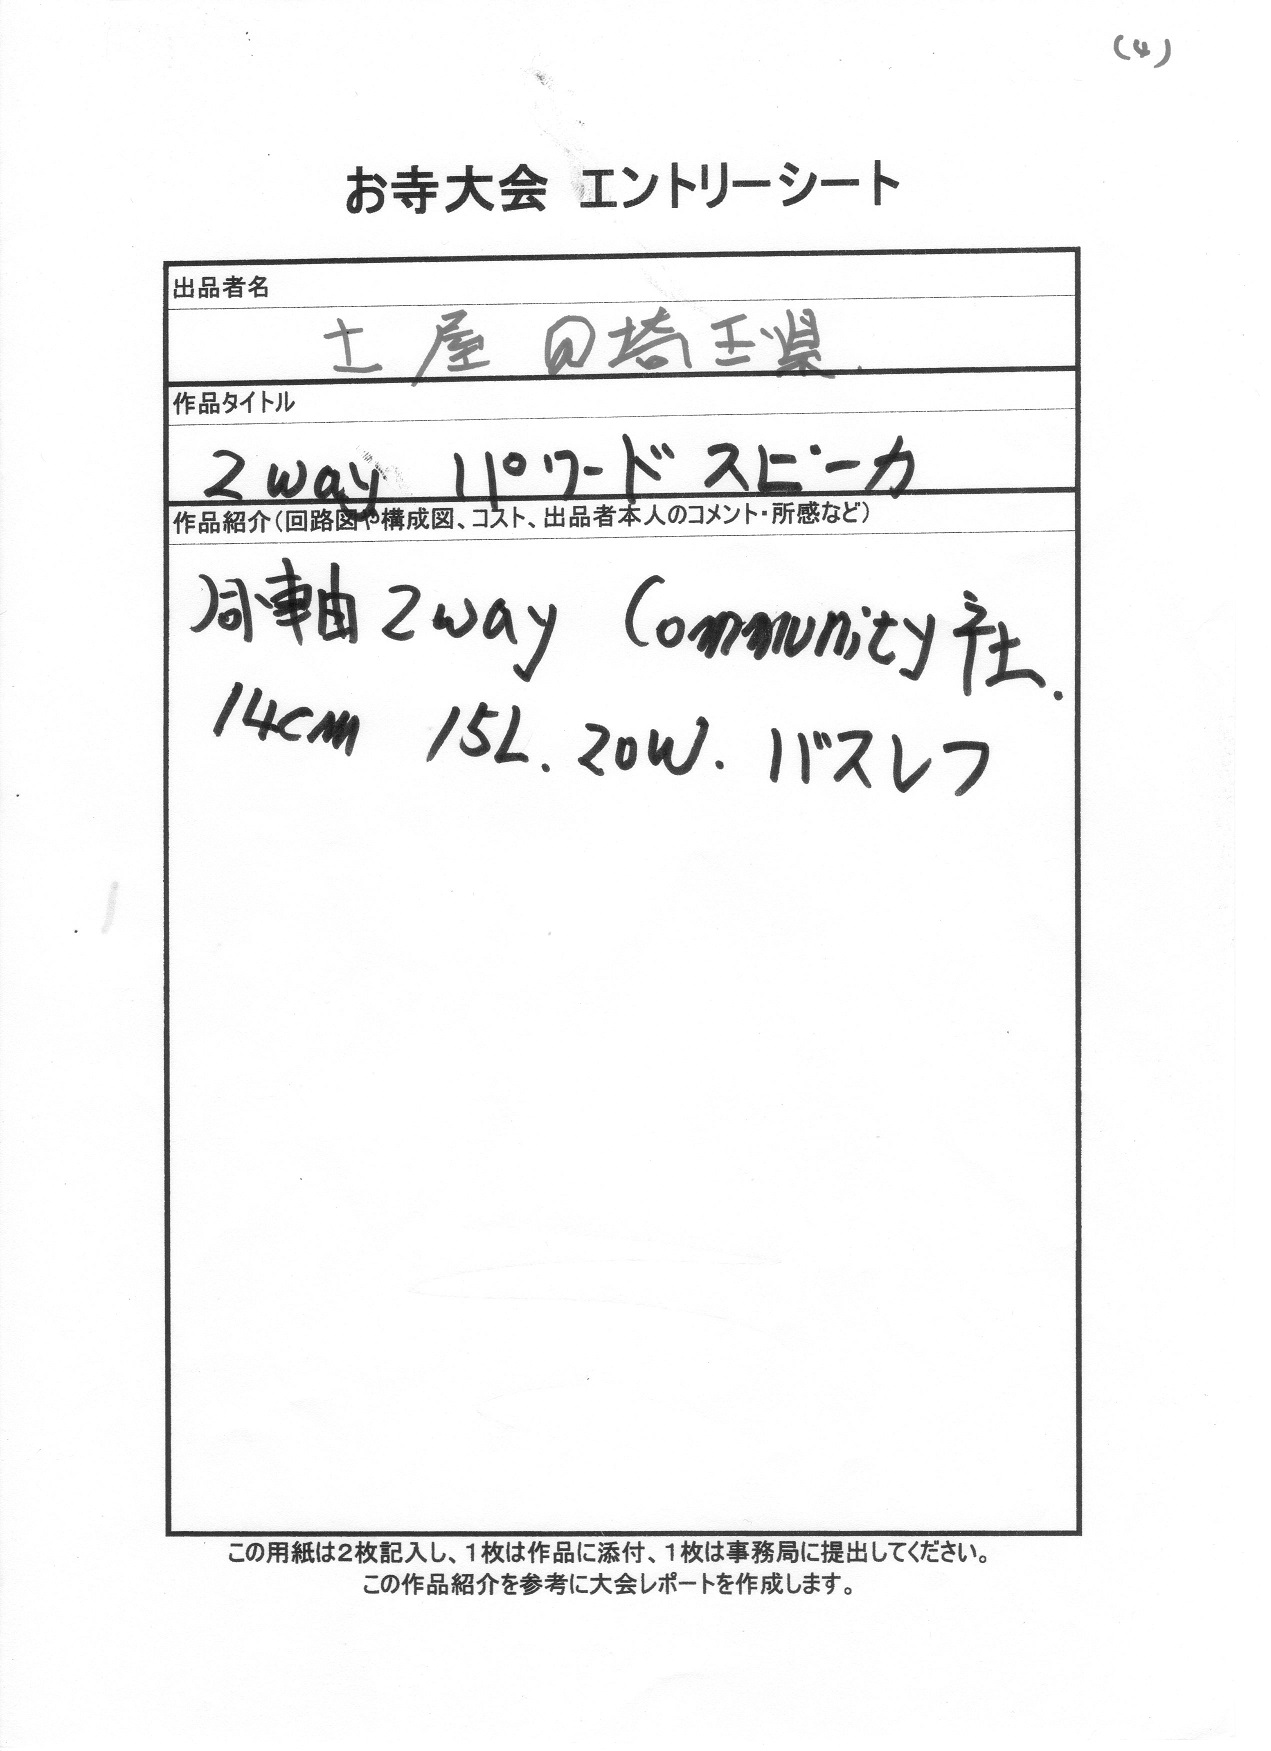 (4)
お寺大会 エントリーシート
出品者名
土屋 @埼玉県.
作品タイトル
2way パワードスピーカ
作品紹介(回路図や構成図、コスト、出品者本人のコメント・所感など)
同軸2way Community社.
14cm 15L. 20W. バスレフ
この用紙は2枚記入し、1枚は作品に添付、1枚は事務局に提出してください。
この作品紹介を参考に大会レポートを作成します。